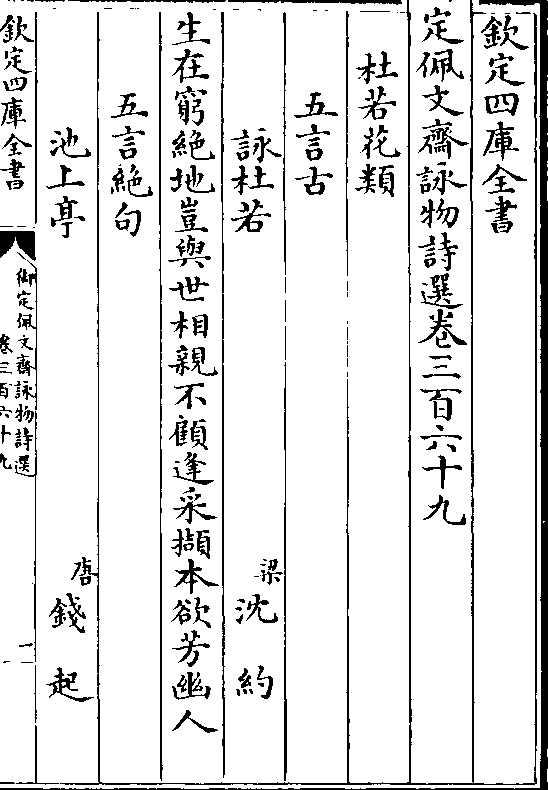 欽定四庫全書
定佩文齋詠物詩選卷三百六十九
杜若花類
五言古
詠杜若 梁 沈約
生在窮絶地豈與世相親不顧逢采擷本欲芳幽人
五言絶句
池上亭 唐 錢起
欽定四庫全書
御定佩文齋詠物詩選
卷三百六十九
一